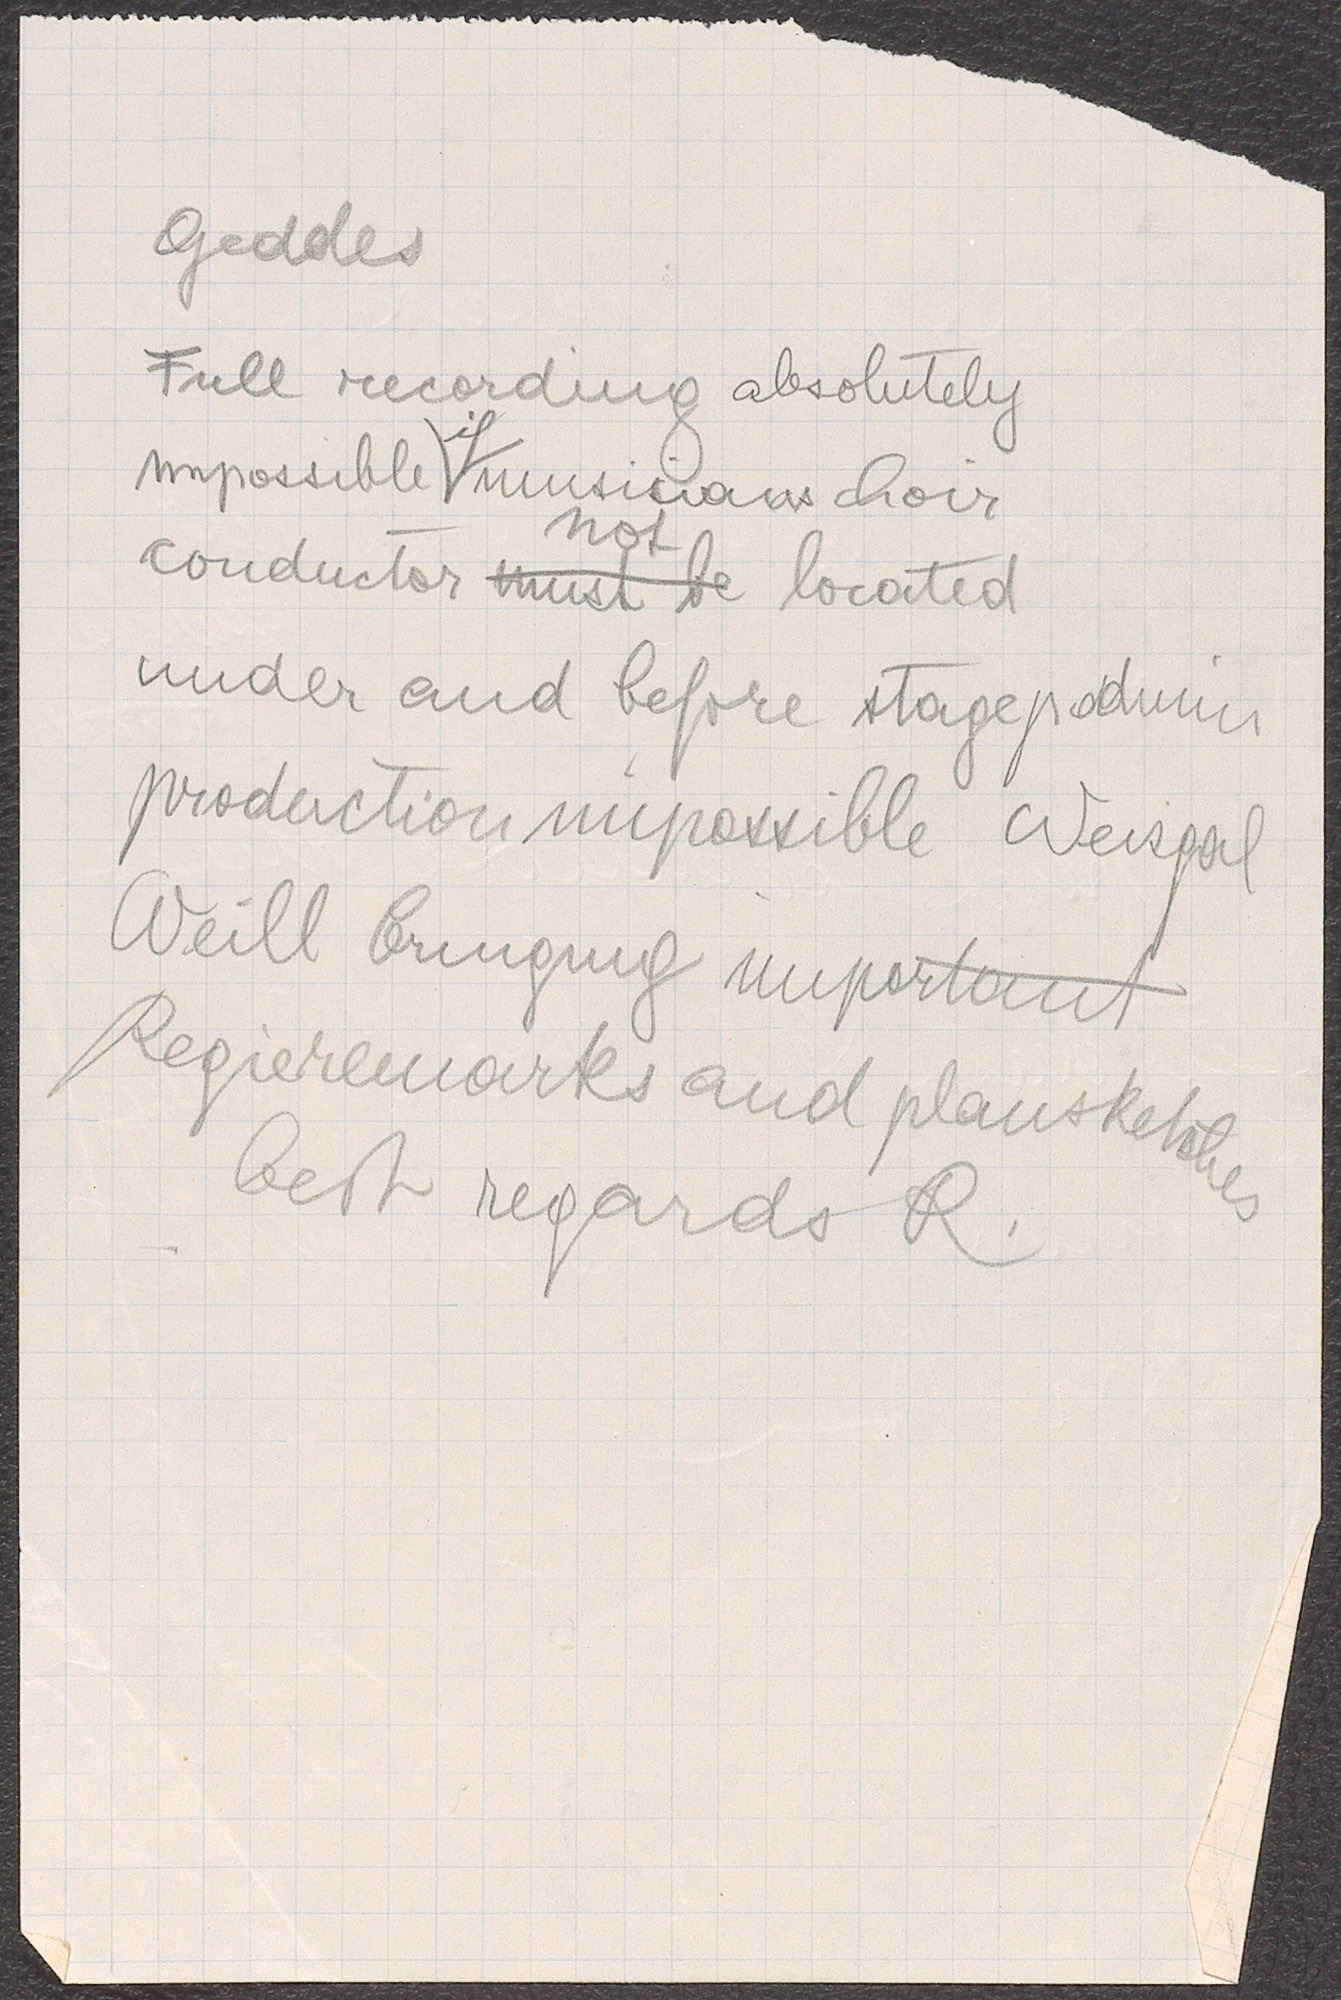 Geddes
Full recording absolutely
impossible if musicians choir
not
conductor must be located
under and before stagepodium
production impossible Weisgal
Weill bringing important
Regieremarks and plansketches
best regards R.